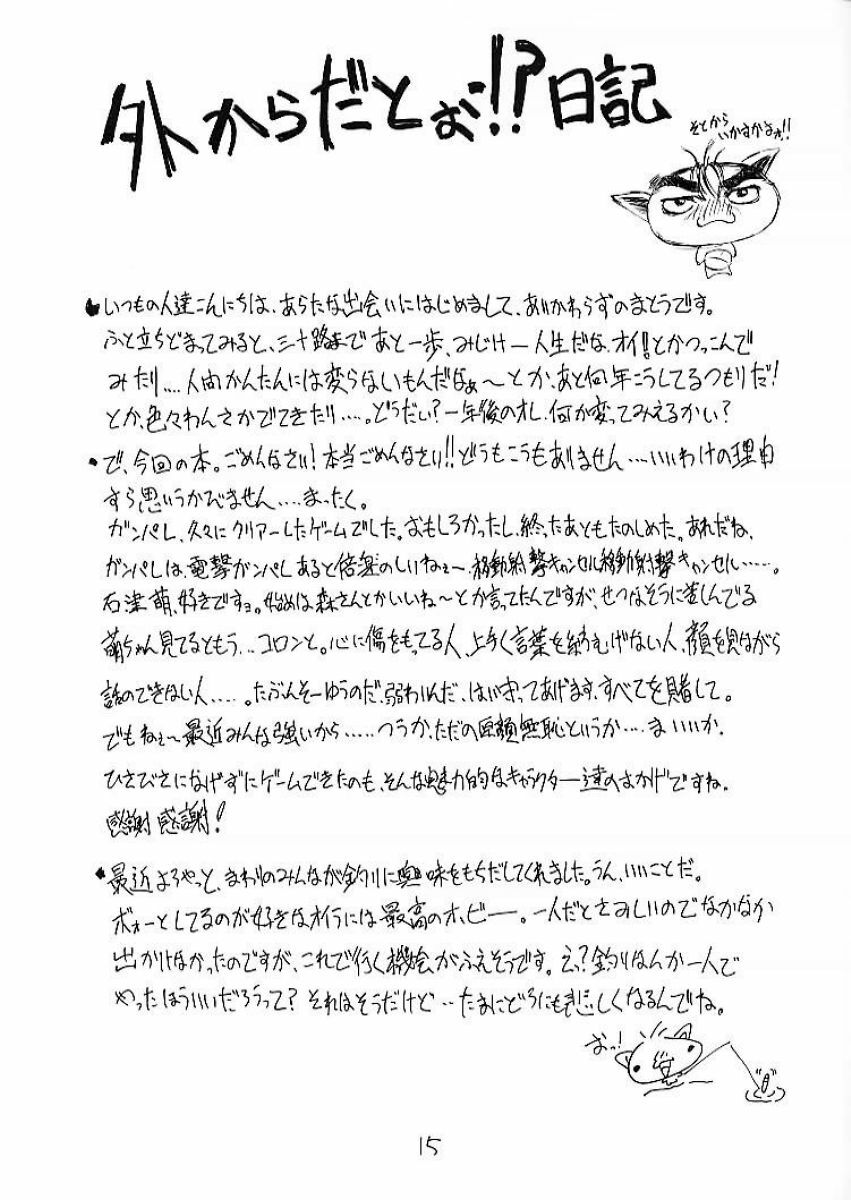 外からだとぉ!!?日記
そとから
いかすかよォ!!
・いつもの人達こんにちは、あらたな出会いにはじめまして、あいかわらずのまとうです。
ふと立ちどまってみると、三十路まであと一歩、みじけー人生だな、オイ!とかつっこんで
みたり....人間かんたんには変らないもんだなぁ〜とか、あと何年こうしてるつもりだ!
とか、色々わんさかでてきたり....。どうだい?一年後のオレ、何か変ってみえるかい?
・で、今回の本。ごめんなさい!本当ごめんなさい!!どうもこうもありません...いいわけの理由
すら思いうかびません....まったく。
ガンパレ、久々にクリアーしたゲームでした。おもしろかったし、終ったあともたのしめた。あれだね、
ガンパレは、電撃ガンパレあると倍楽のしいねぇ〜、移動射撃キャンセル移動射撃キャンセル.....。
石津萌、好きですョ。始めは森さんとかいいね〜とか言ってたんですが、せつなそうに並しんでる
萌ちゃん見てるともう...コロンと。心に傷をもってる人、上手く言葉を紡むげない人、顔を見ながら
話のできない人.....。たぶんそーゆうのだ、弱いんだ、はい守ってあげます、すべてを賭して。
でもねぇ〜最近みんな強いから.....つうか、ただの厚顔無恥というか....ま、いいか、
ひさびさになげずにゲームできたのも、そんな魅力的なキャラクター達のおかげですね。
感謝感謝!
・最近よろやっと、まわりのみんなが釣りに興味をもちだしてくれました。うん、いいことだ。
ボォーとしてるのが好きなオイラには最高のホビー。一人だとさみしいのでなかなか
出かけなかったのですが、これで行く機会がふえそうです。え?釣りなんか一人で
やったほうがいいだろうって?それはそうだけど..たまにどろにも悲しくなるんでね。
おっ!
15